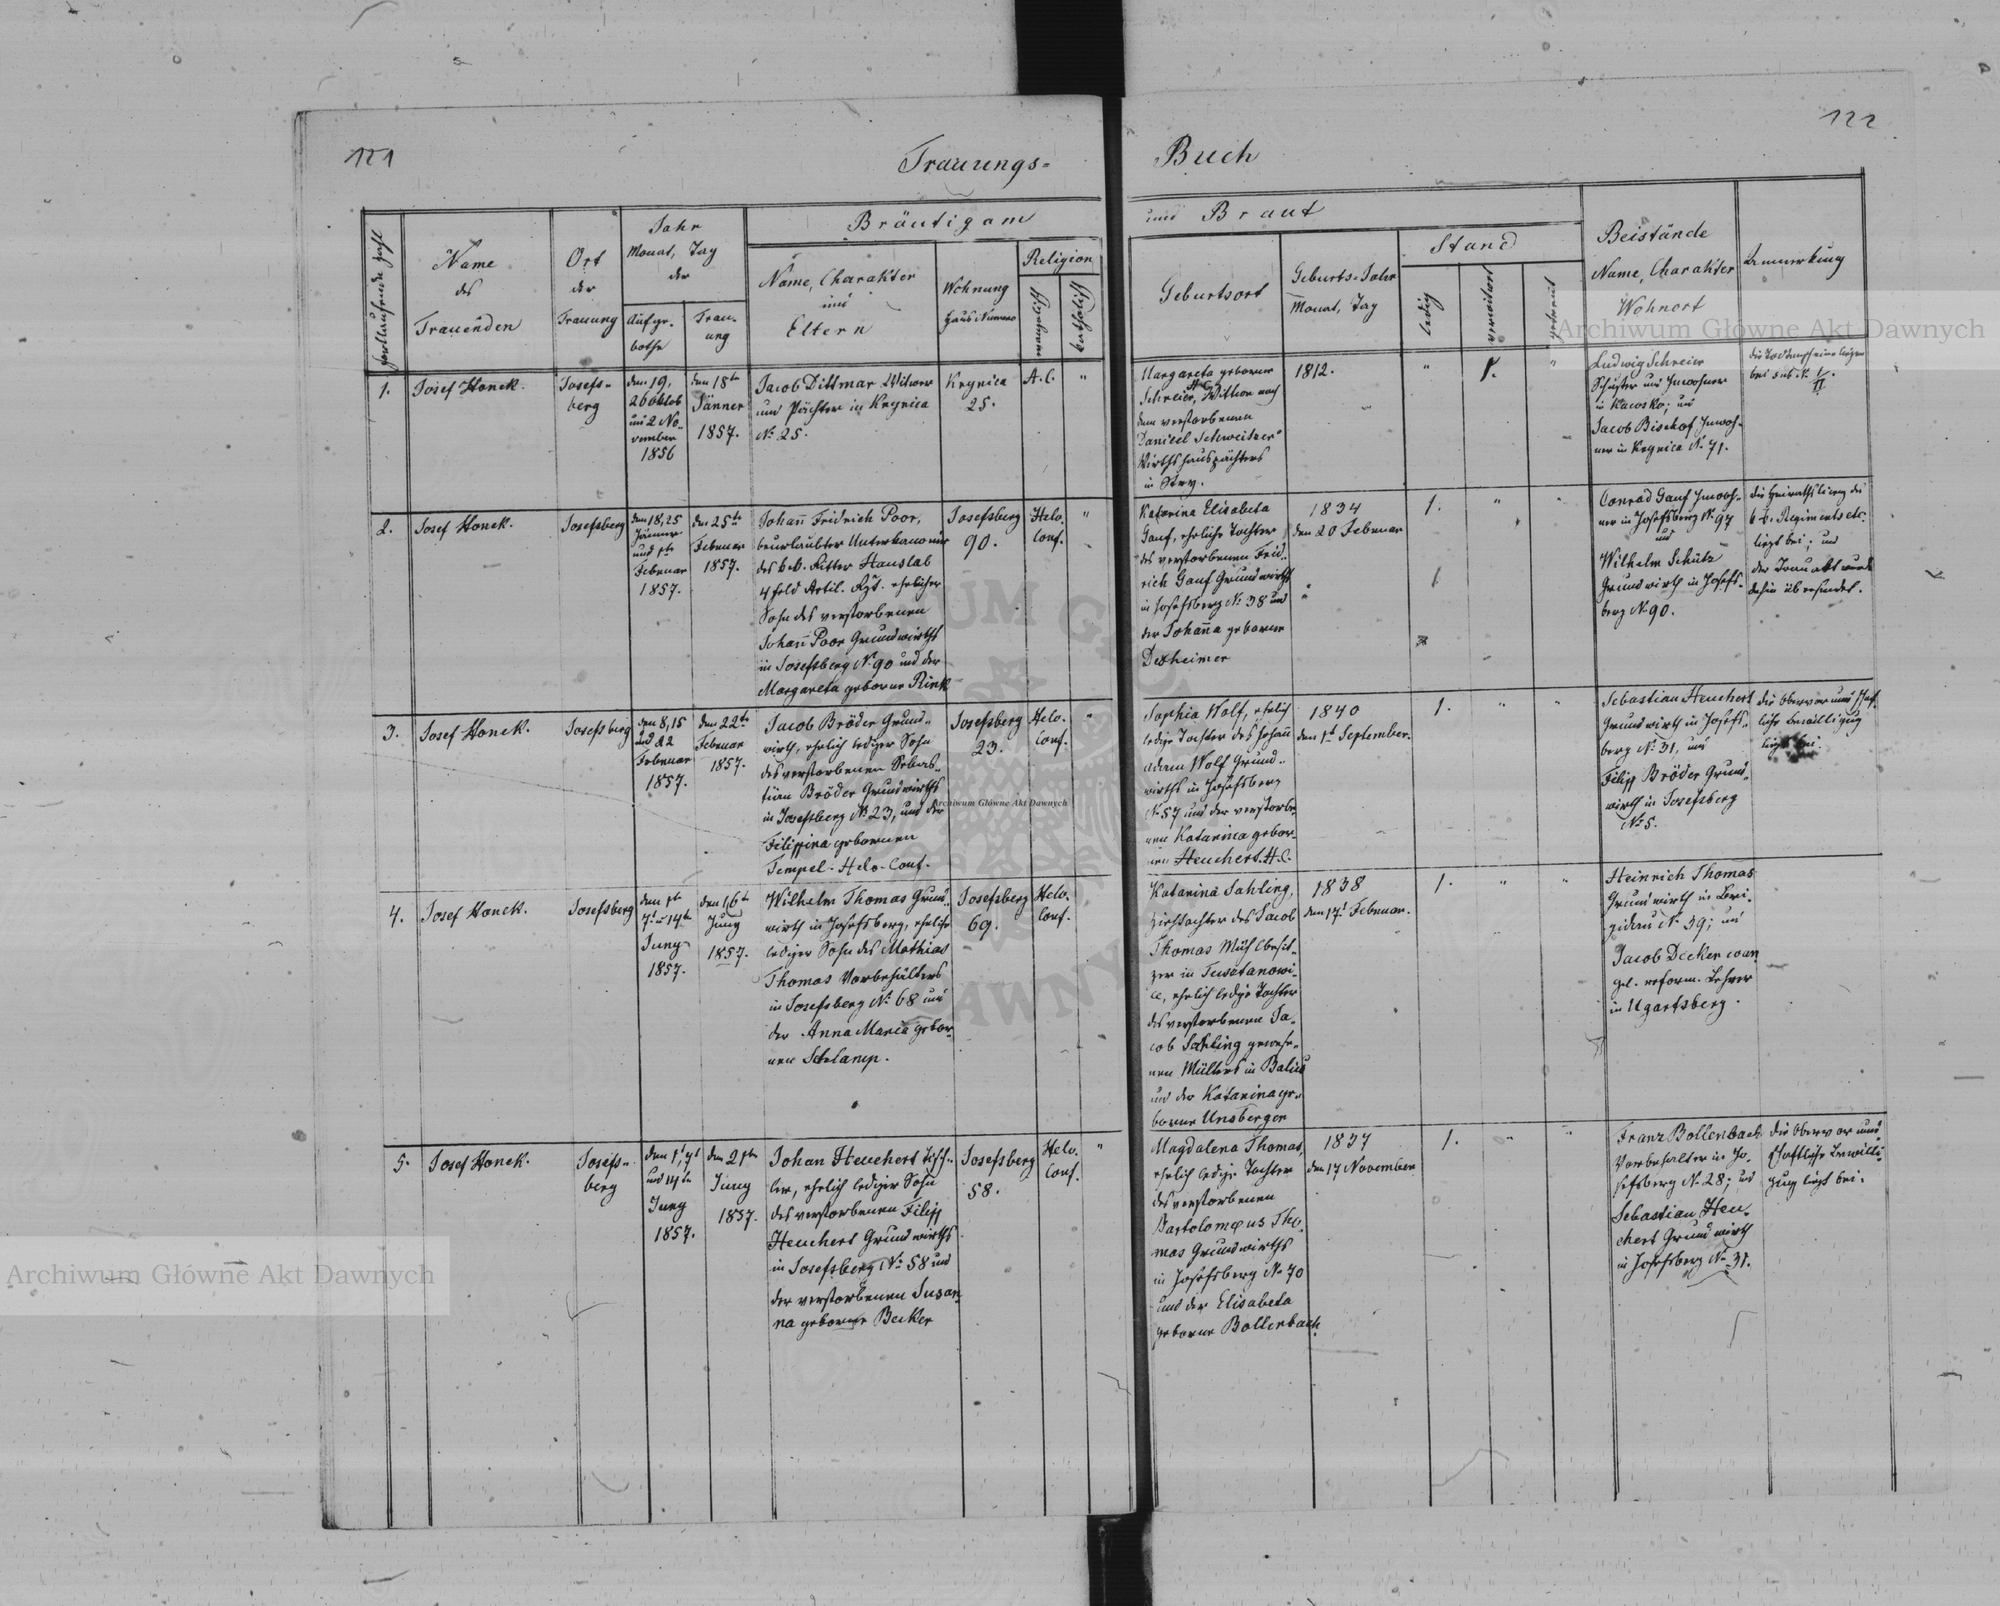 121
Trauungs=
Buch
122
fortlaufende Zahl
Name
des
Trauenden
Ort
der
Trauung
Jahr
Monat, Tag
der
Aufge-
bothe
Trau-
ung
Bräutigam
Name, Charakter
und
Eltern
Wohnung
Haus Numero
Religion
evangelisch
katholisch
und Braut
Geburtsort
Geburts=Jahr
Monat, Tag
Stand
ledig
verwitwet
getrennt
Beistände
Name, Charakter
Wohnort
Anmerkung
1.
Josef Honek.
Josefs-
berg
den 19,
26 Oktob
und 2 No-
vember
1856
den 18ten
Jänner
1857.
Jacob Dittmar Witwer
und Pächter in Krynica
No 25.
Krynica
25.
A. C.
"
Margareta geborne
Schreier, A.C. Wittwe nach
dem verstorbenen
Daniel Schweitzer
Wirthshauspächters
in Stry.
1812.
"
1.
"
Ludwig Schreier
Schuster und Inwohner
in Kawsko; und
Jacob Bischof Inwoh-
ner in Krynica No 71.
bei sub No I/II.
2.
Josef Honek.
Josefsberg
den 18, 25
Jänner
und 1te
Februar
1857.
den 25te
Februar
1857.
Johañ Fridrich Poor,
beurlaubter Unterkanonier
des k.k. Ritter Hauslab
4 feld Artil. Rgt. ehelicher
Sohn des verstorbenen
Johañ Poor Grundwirths
in Josefsberg No 90 und der
Margareta geborne Rink
Josefsberg
90.
Helv.
Conf.
"
Katarina Elisabeta
Ganf, eheliche Tochter
des verstorbenen Frid-
rich Ganf Grundwirths
in Josefsberg No 38 und
der Johaña geborne
Dexheimer
1834
den 20 Februar
1.
"
"
Conrad Ganf Inwoh-
ner in Josefsberg No 97
und
Wilhelm Schütz
Grundwirth in Josefs-
berg No 90.
die Heirathslicenz des
k.k. Regiments etc.
liegt bei; und
der Trauakt wurde
dahin übersendet.
3.
Josef Honek.
Josefsberg
den 8, 15
und 22
Februar
1857.
den 22te
Februar
1857.
Jacob Bröder Grund-
wirth, ehelich lediger Sohn
des verstorbenen Sebas-
tian Bröder Grundwirths
in Josefsberg No 23, und der
Filippina gebornen
Tempel. Helv. Conf.
Josefsberg
23.
Helv.
Conf.
"
Sophia Wolf, ehelich
ledige Tochter des Johañ
Adam Wolf Grund-
wirths in Josefsberg
No 57 und der verstorbe-
nen Katarina gebor-
nen Heuchert. H.C.
1840
den 1t September.
1.
"
"
Sebastian Heuchert
Grundwirth in Josefs-
berg No 31, und
Filipp Bröder Grund-
wirth in Josefsberg
No 5.
die Obervormundschaft-
liche Bewilligung
liegt bei.
4.
Josef Honek.
Josefsberg
den 1te
7t u 14te
Juny
1857.
den 16te
Juny
1857.
Wilhelm Thomas Grund-
wirth in Josefsberg, ehelich
lediger Sohn des Mathias
Thomas Vorbehälters
in Josefsberg No 68 und
der Anna Maria gebor-
nen Schlamp.
Josefsberg
69.
Helv.
Conf.
Katarina Sahling,
Ziehtochter des Jacob
Thomas Mühlbesit-
zer in Tustanowi-
ce, ehelich ledige Tochter
des verstorbenen Ja-
cob Sahling gewese-
nen Müllers in Balice
und der Katarina ge-
borne Unsberger
1838
den 17t Februar.
1.
"
"
Heinrich Thomas
Grundwirth in Bri-
gidau No 39; und
Jacob Decker evan
gel. reform. Lehrer
in Ugartsberg.
5.
Josef Honek.
Josefs-
berg
den 1t, 7t
und 14te
Juny
1857.
den 21ten
Juny
1857.
Johan Heuchert Tisch-
ler, ehelich lediger Sohn
des verstorbenen Filipp
Heuchert Grundwirths
in Josefsberg No 58 und
der verstorbenen Susan-
na geborne Becker
Josefsberg
58.
Helv.
Conf.
"
Magdalena Thomas,
ehelich ledige Tochter
des verstorbenen
Bartolomeus Tho-
mas Grundwirths
in Josefsberg No 70
und der Elisabeta
geborne Bollenbach.
1837
den 17 November
1.
"
"
Franz Bollenbach
Vorbehalter in Jo-
sefsberg No 28; und
Sebastian Heu-
chert Grundwirth
in Josefsberg No 31.
die Obervormund-
schaftliche Bewilli-
gung liegt bei.
Archiwum Główne Akt Dawnych
Archiwum Główne Akt Dawnych
Archiwum Główne Akt Dawnych